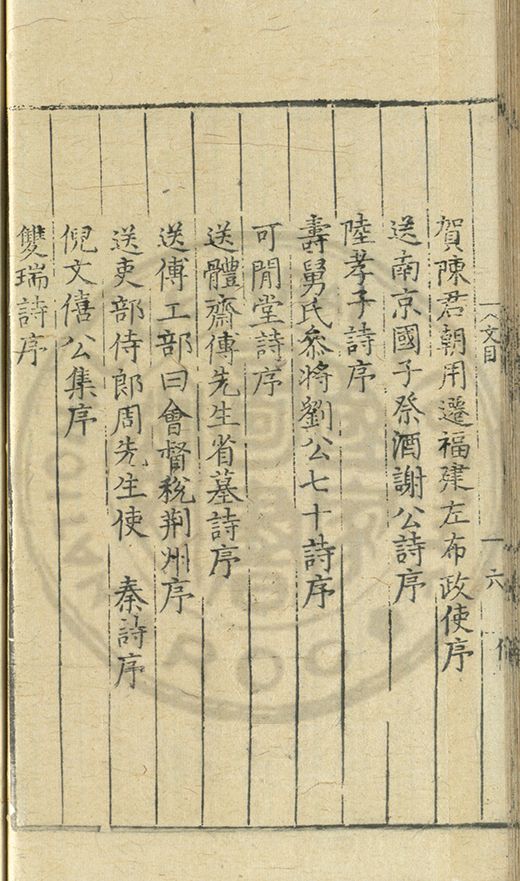 文目
六
賀陳君朝用遷福建左布政使序
送南京國子祭酒謝公詩序
陸孝子詩序
壽舅氏叅將劉公七十詩序
可閒堂詩序
送體齋傅先生省墓詩序
送傅工部曰會督稅荆州序
送吏部侍郎周先生使　秦詩序
倪文僖公集序
雙瑞詩序